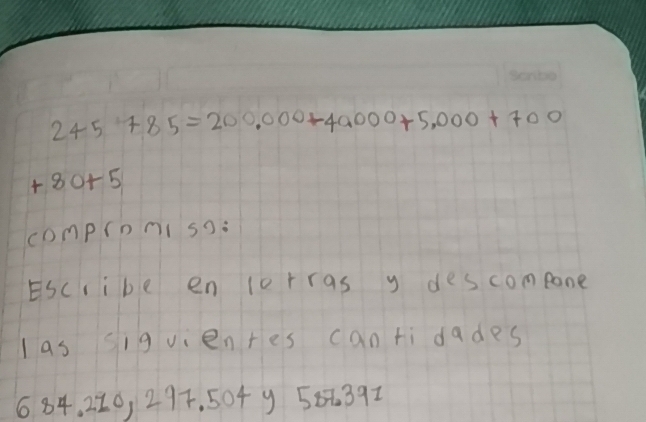 Scribe
245 785=200.000+40000+5.000+700
+80+5
compromiso:
Escribe en letras y descompone
las siguientes cantidades
684.210, 297.504 y